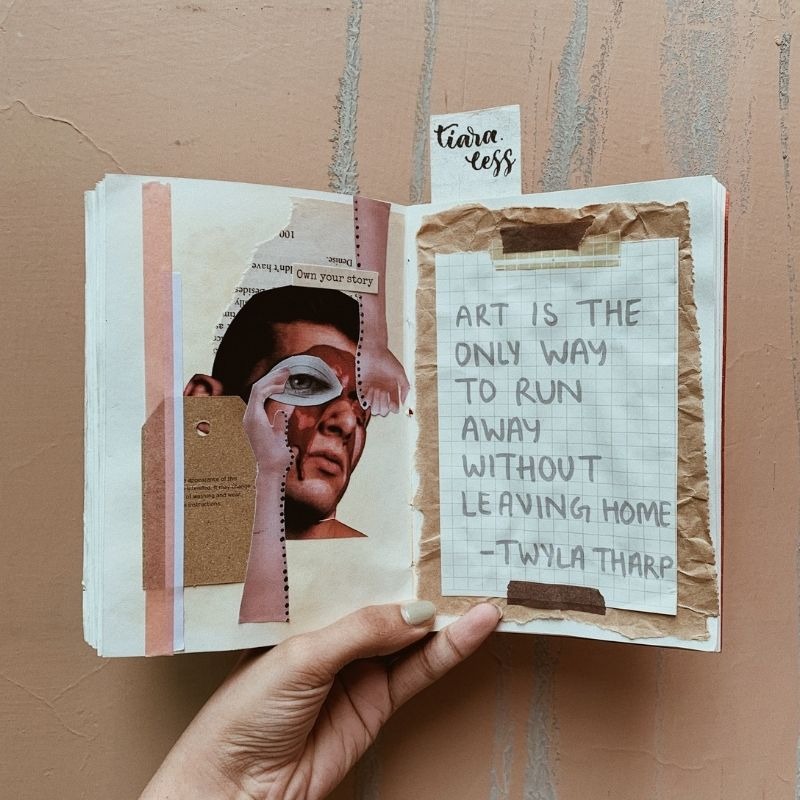 tiara.
less
100
Denise.
ldn't have
Own your story
appearance of this
intended. It may change
of washing and wear.
instructions.
ART IS THE
ONLY WAY
TO RUN
AWAY
WITHOUT
LEAVING HOME
-TWYLA THARP